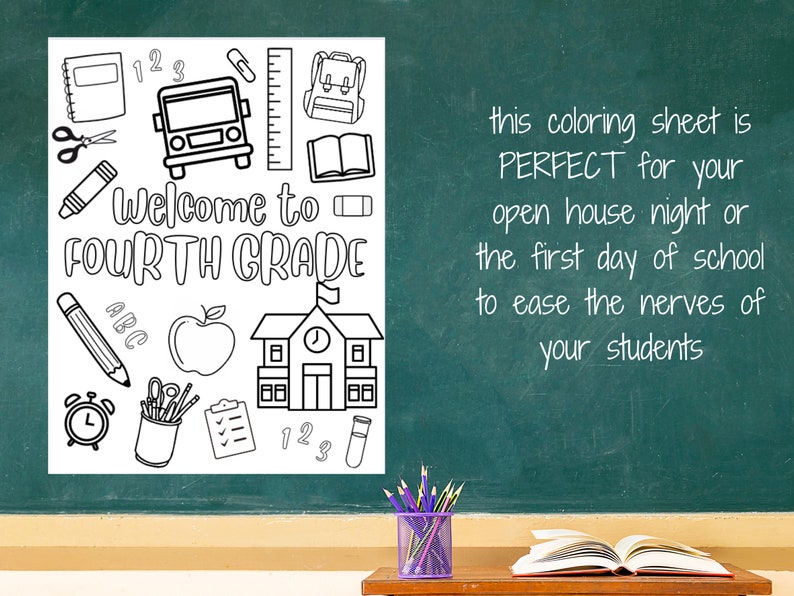 1 2 3
Welcome to
FOURTH GRADE
ABC
1 2 3
this coloring sheet is
PERFECT for your
open house night or
the first day of school
to ease the nerves of
your students